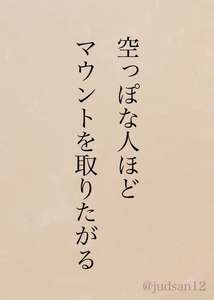 空っぽな人ほど
マウントを取りたがる
@judsan12